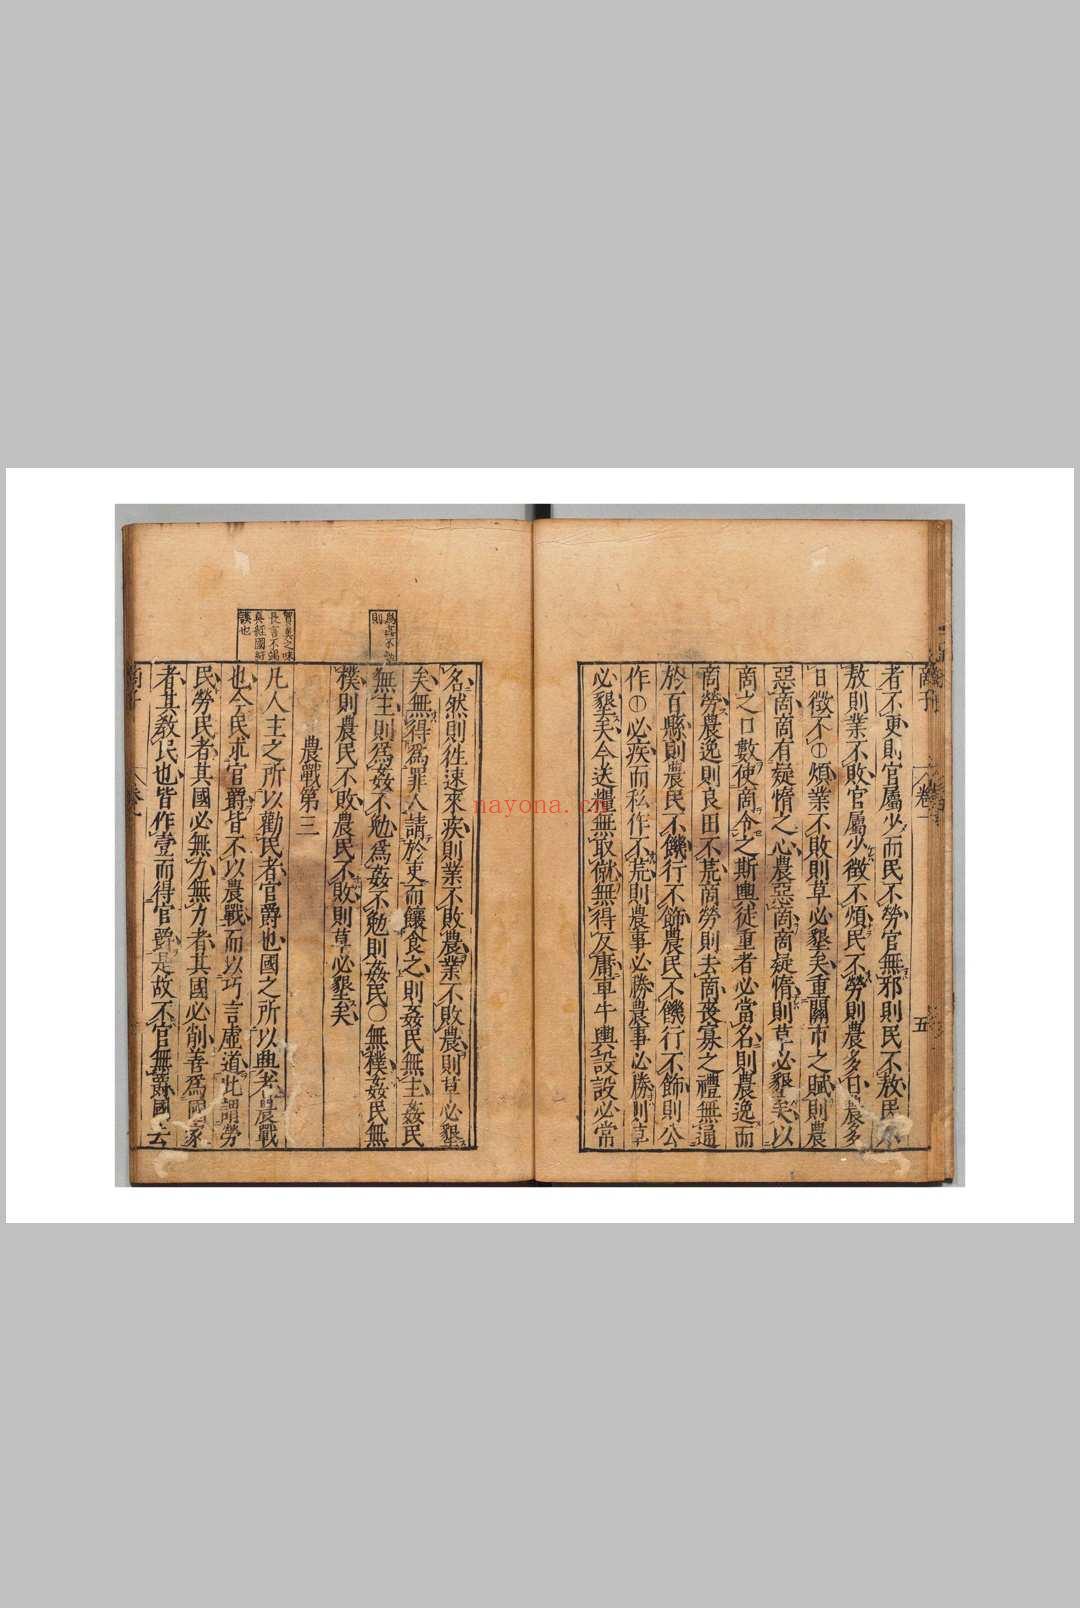 商子 卷一 五
者不更則官屬少而民不勞官無邪則民不敖民不
敖則業不敗官屬少徵不煩民不勞則農多日農多
日徵不①煩業不敗則草必墾矣重關市之賦則農
惡商商有疑惰之心農惡商商疑惰則草必墾矣以
商之口數使商令之斯輿徒重者必當名則農逸而
商勞農逸則良田不荒商勞則去商喪寡之禮無通
於百縣則農民不饑行不飾農民不饑行不飾則公
作①必疾而私作不荒則農事必勝農事必勝則草
必墾矣今送糧無取僦無得反庸車牛輿設設必當
名然則徃速來疾則業不敗農業不敗農則草必墾
矣無得爲罪人請於吏而饟食之則姦民無主姦民
無主則爲姦不勉爲姦不勉則姦民〇無樸姦民無
樸則農民不敗農民不敗則草必墾矣
農戰第三
凡人主之所以勸民者官爵也國之所以興者農戰
也今民求官爵皆不以農戰而以巧言虛道此謂勞
民勞民者其國必無力無力者其國必削善爲國家
者其敎民也皆作壹而得官爵是故不官無爵國去
之味
長言不竭
眞經國
謨也
nayona.cn